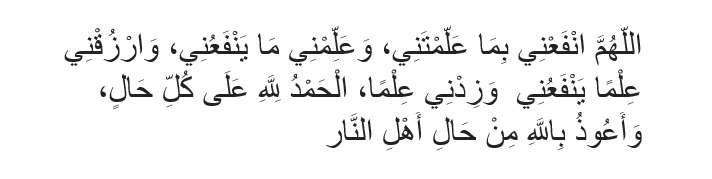 اللّهُمَّ انْفَعْنِي بِمَا عَلَّمْتَنِي، وَعَلِّمْنِي مَا يَنْفَعُنِي، وَارْزُقْنِي
عِلْمًا يَنْفَعُنِي وَزِدْنِي عِلْمًا، الْحَمْدُ لِلَّهِ عَلَى كُلِّ حَالٍ،
وَأَعُوذُ بِاللَّهِ مِنْ حَالِ أَهْلِ النَّار